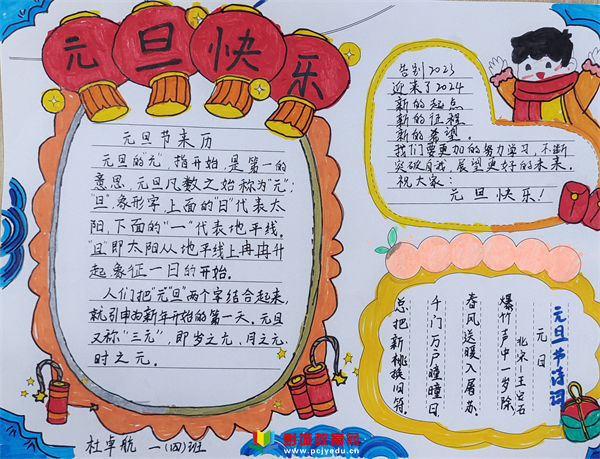 元旦快乐
元旦节来历
元旦的"元"指开始,是第一的
意思,元旦凡数之始称为"元";
"旦"象形字,上面的"日"代表太
阳,下面的"一"代表地平线。
"旦"即太阳从地平线上冉冉升
起象征一日的开始。
人们把"元""旦"两个字结合起来,
就引申为新年开始的第一天。元旦
又称"三元",即岁之元、月之元、
时之元。
告别2023
迎来了2024
新的起点
新的征程
新的希望。
我们要更加的努力学习,不断
突破自我,展望更好的未来。
祝大家:
元旦快乐!
元旦节诗词
元日
北宋—王安石
爆竹声中一岁除
春风送暖入屠苏。
千门万户曈曈日
总把新桃换旧符。
杜卓航 一(四)班
www.pcjyedu.cn